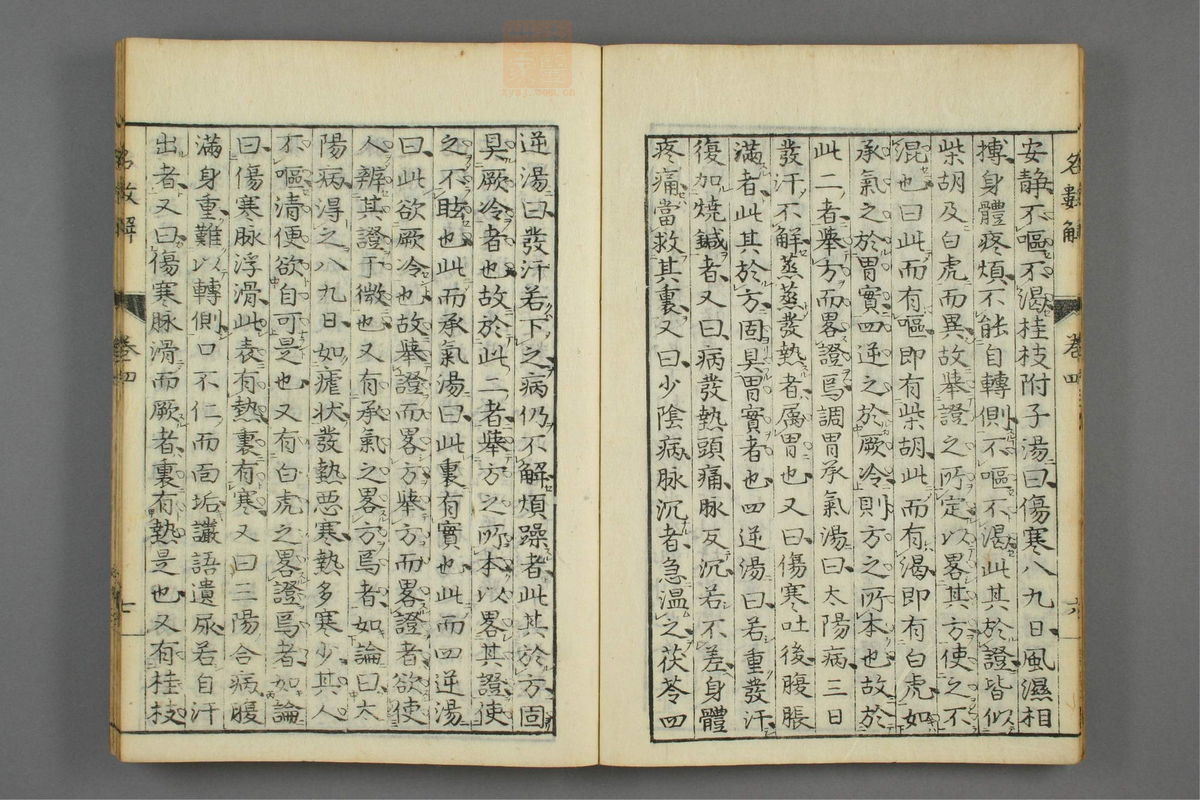 名數解 卷四 六
安静不嘔不渴桂枝附子湯曰傷寒八九日風濕相
搏身體疼煩不能自轉側不嘔不渴此其於證皆似
柴胡及白虎而異故舉證之所定以畧其方使之不
混也曰此而有嘔即有柴胡此而有渴即有白虎如
承氣之於胃實四逆之於厥冷則方之所本也故於
此二者舉方而畧證焉調胃承氣湯曰太陽病三日
發汗不解蒸蒸發熱者属胃也又曰傷寒吐後腹脹
滿者此其於方固具胃實者也四逆湯曰若重發汗
復加燒鍼者又曰病發熱頭痛脉反沉若不差身體
疼痛當救其裏又曰少陰病脉沉者急温之茯苓四
逆湯曰發汗若下之病仍不解煩躁者此其於方固
具厥冷者也故於此二者舉方之所本以畧其證使
之不眩也此而承氣湯曰此裏有實也此而四逆湯
曰此欲厥冷也故舉證而畧方舉方而畧證者欲使
人辨其證于微也又有承氣之畧方焉者如論曰太
陽病得之八九日如瘧狀發熱惡寒熱多寒少其人
不嘔清便欲自可是也又有白虎之畧證焉者如論
曰傷寒脉浮滑此表有熱裏有寒又曰三陽合病腹
滿身重難以轉側口不仁而面垢讝語遺尿若自汗
出者又曰傷寒脉滑而厥者裏有熱是也又有桂枝
名數解 卷四 七